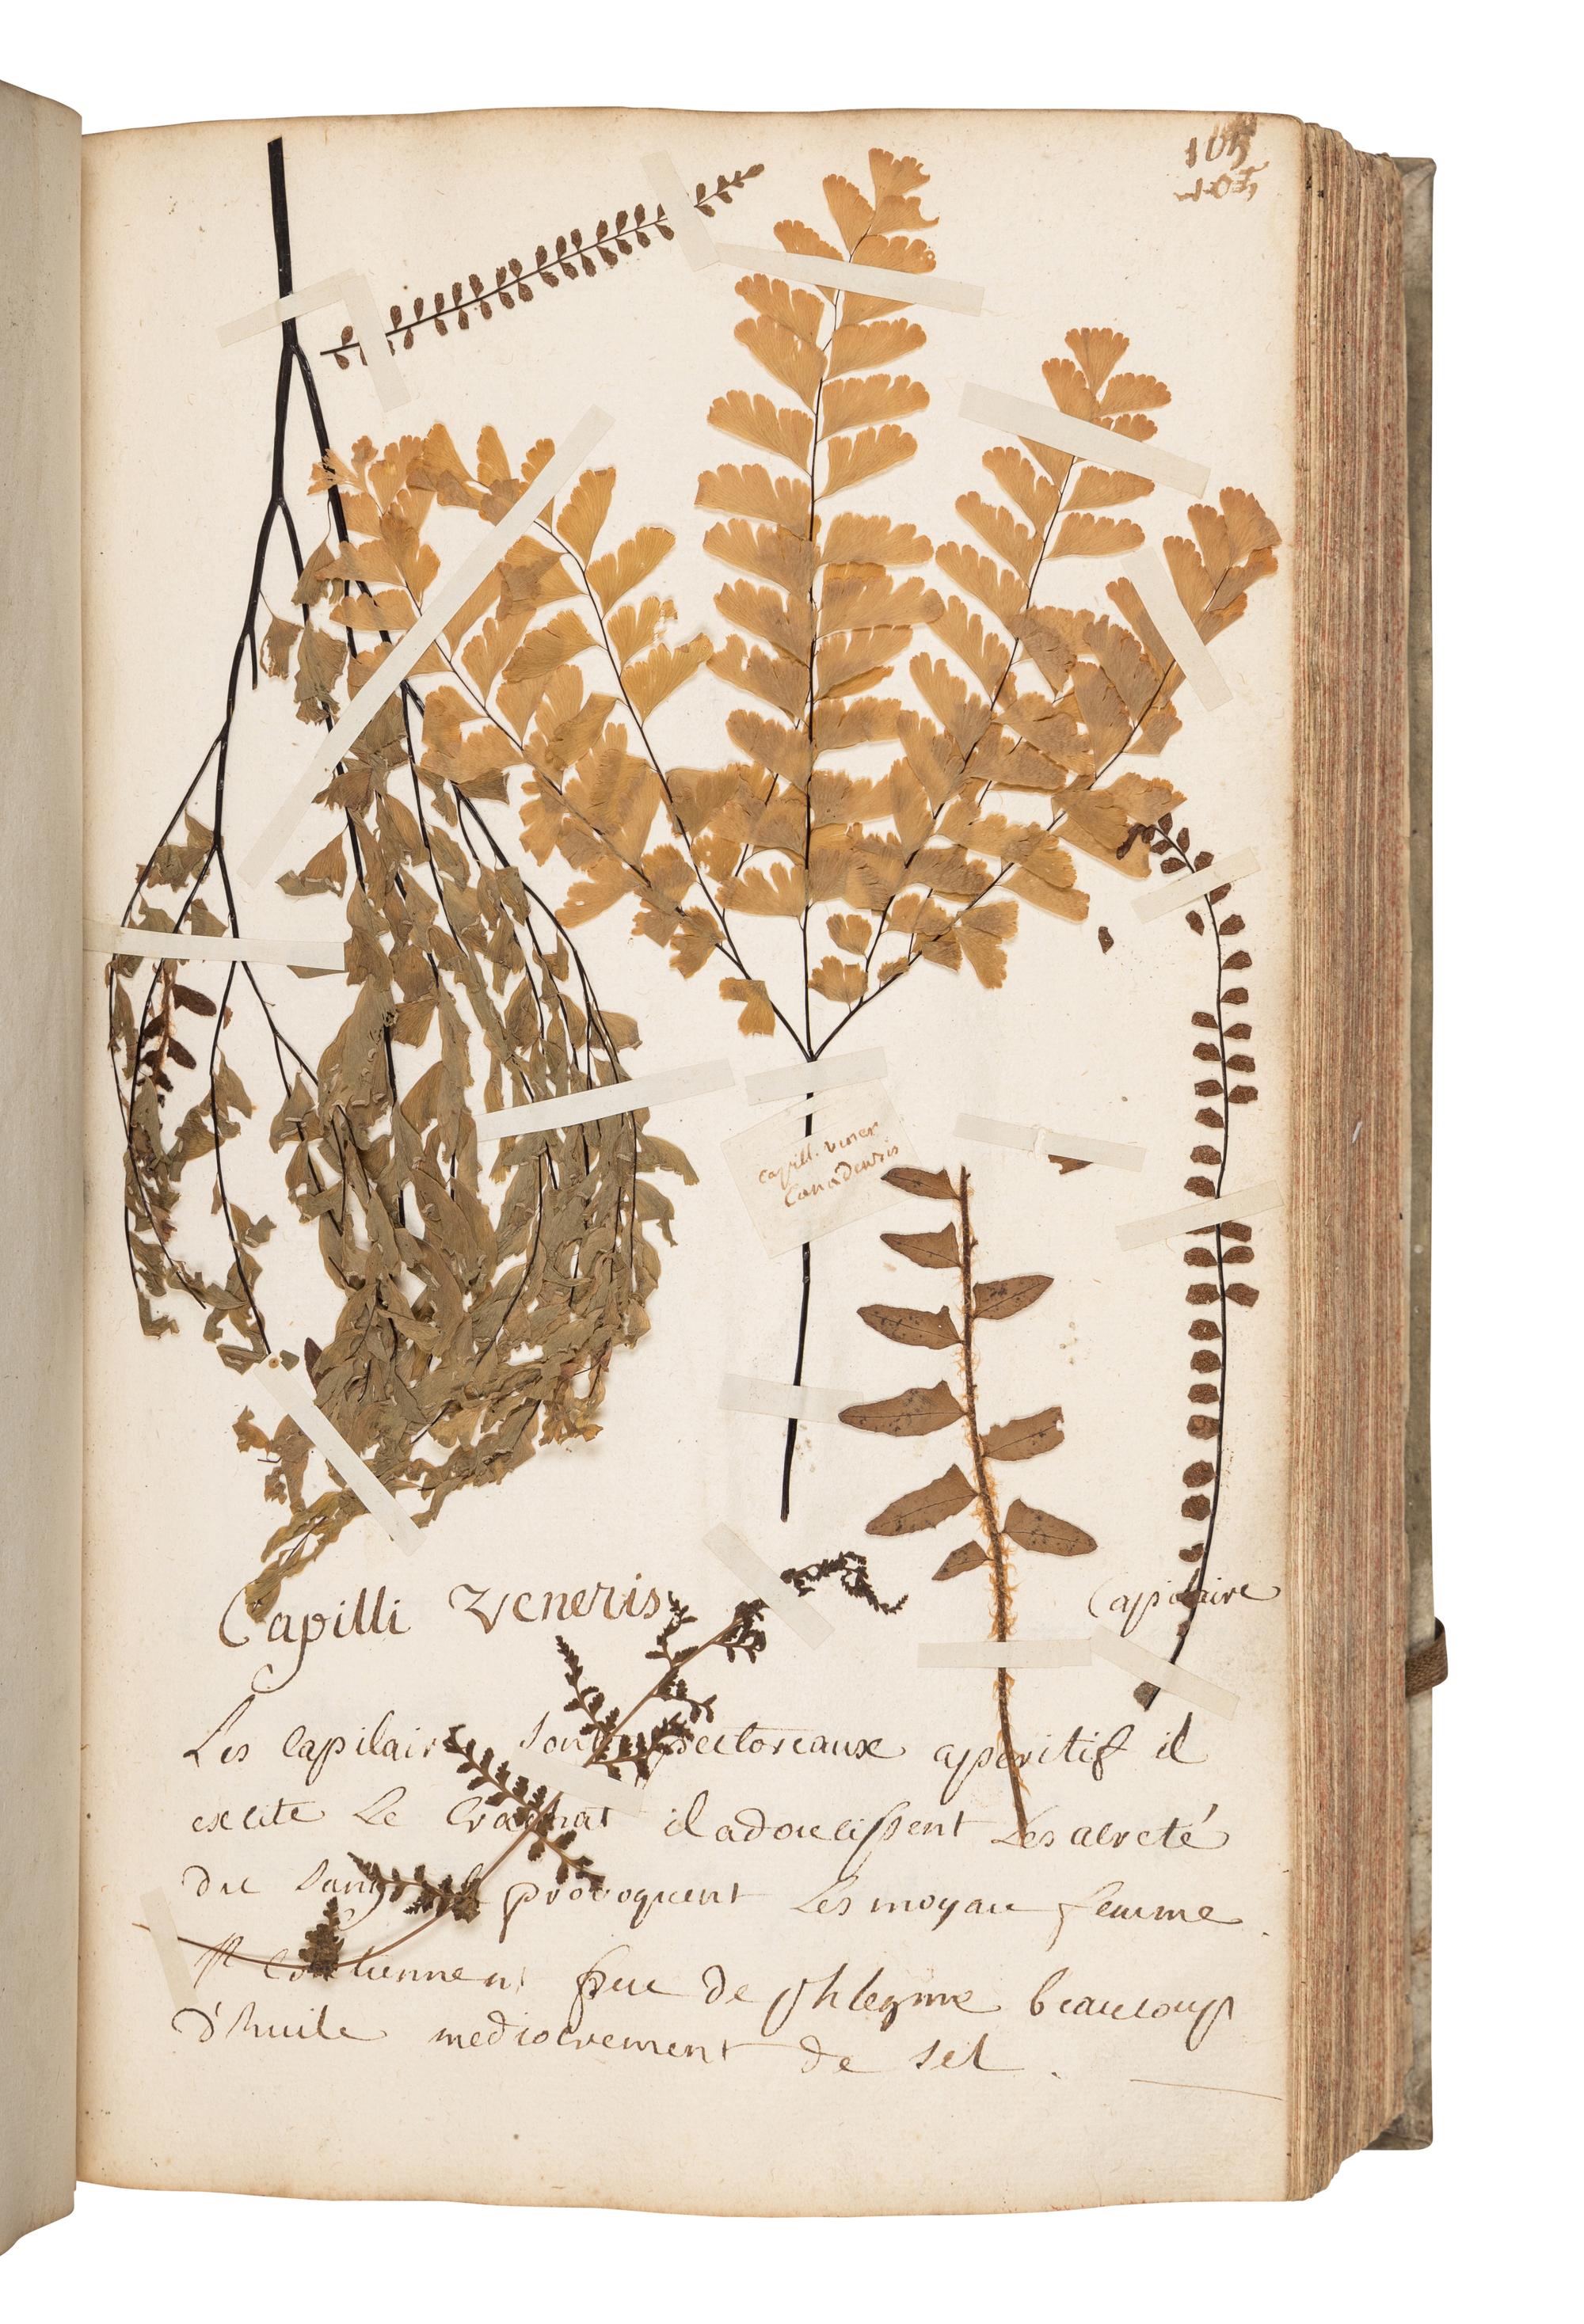 capill. vener
Canadensis
Capilli Veneris
Capilaire
Les Capilaire sont pectoreaux aperitif il
excite Le Crachat il adoucissent Les acreté
du Sang provoquent Les moyau femme
Il Contiennent peu de phlegme beaucoup
d'huile mediocrement de sel .